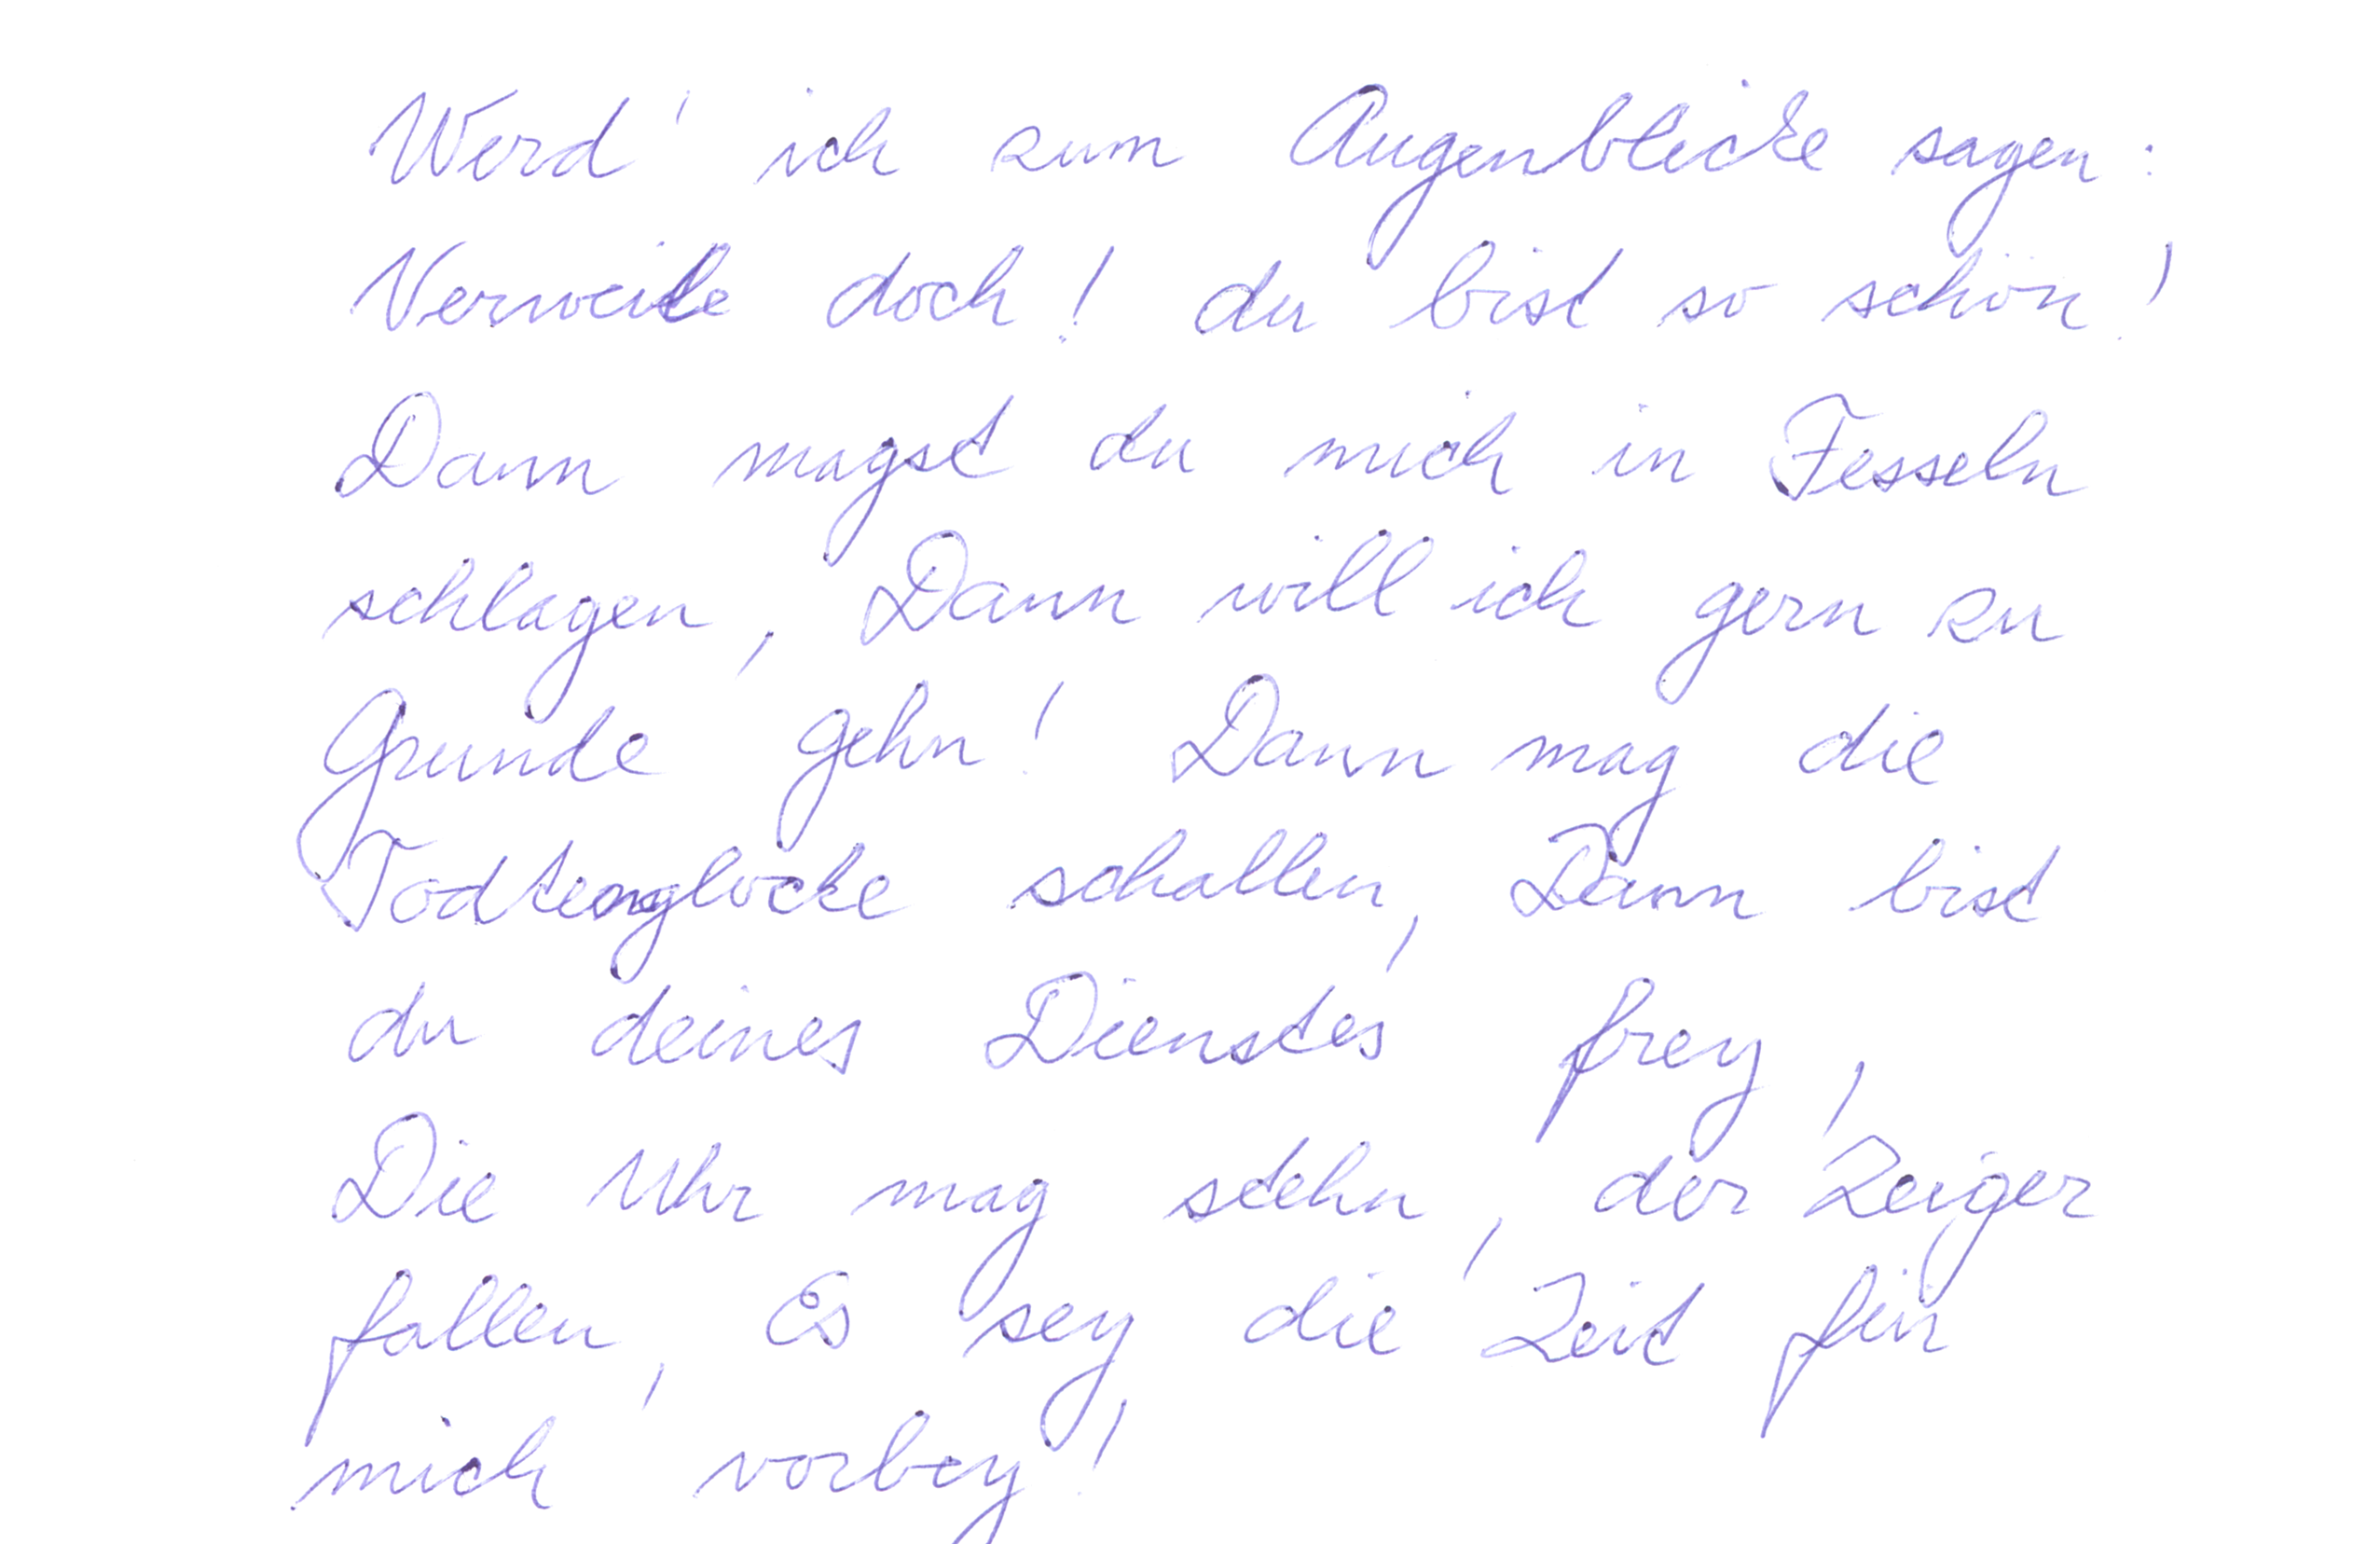 Werd' ich zum Augenblicke sagen:
Verweile doch! du bist so schön!
Dann magst du mich in Fesseln
schlagen, Dann will ich gern zu
Grunde gehn! Dann mag die
Todtenglocke schallen, Dann bist
du deines Dienstes frey,
Die Uhr mag stehn, der Zeiger
fallen, Es sey die Zeit für
mich vorbey!